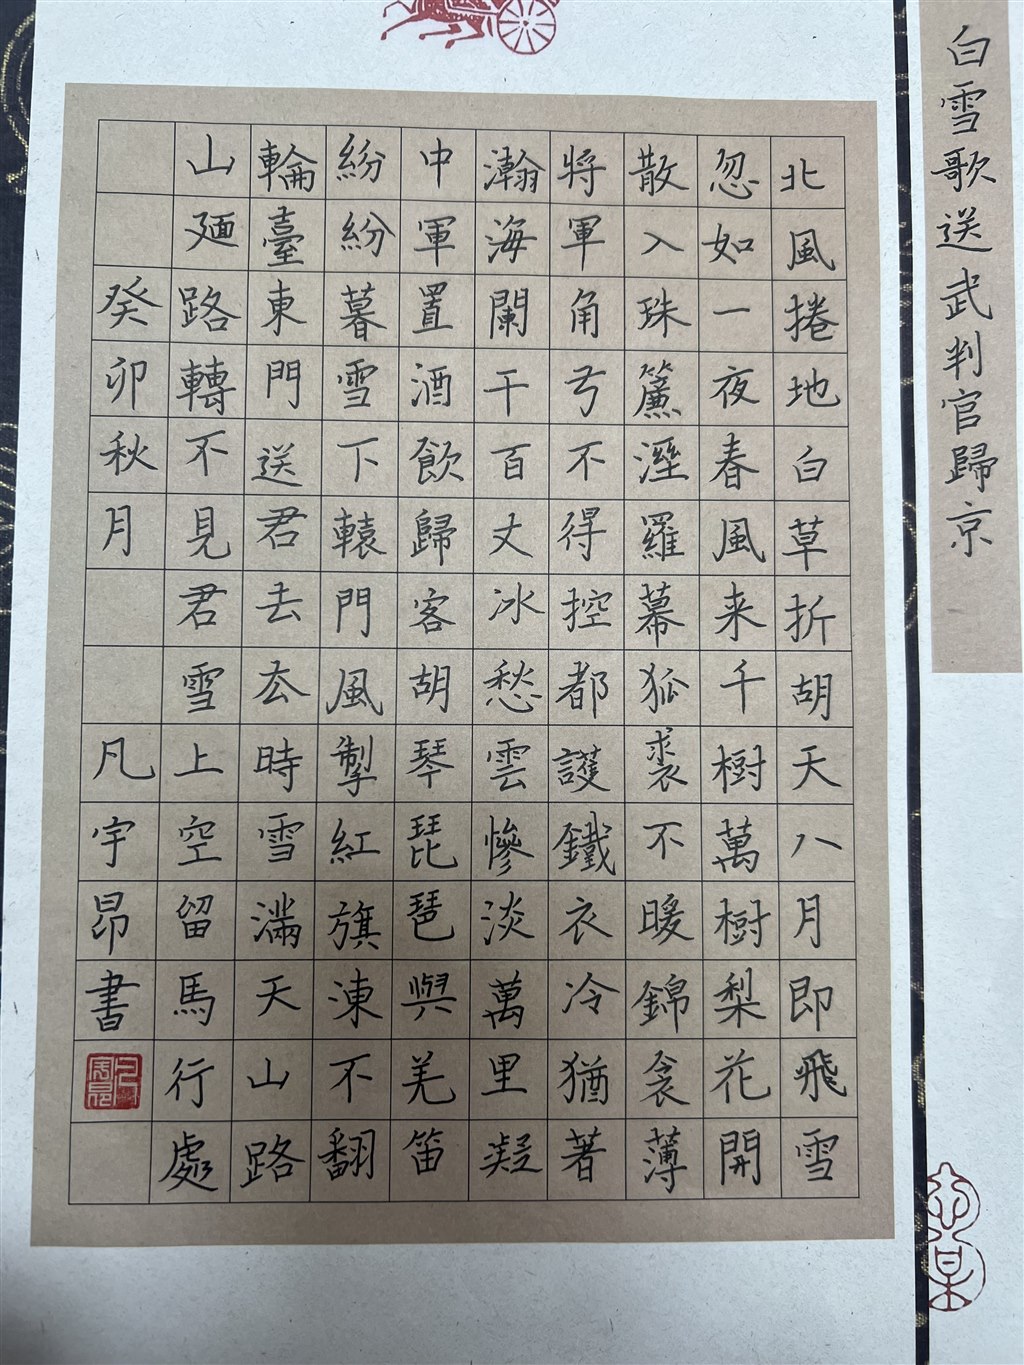 白雪歌送武判官歸京
北風捲地白草折胡天八月即飛雪
忽如一夜春風来千樹萬樹梨花開
散入珠簾溼羅幕狐裘不暖錦衾薄
將軍角弓不得控都護鐵衣冷猶著
瀚海闌干百丈冰愁雲慘淡萬里凝
中軍置酒飲歸客胡琴琵琶與羌笛
紛紛暮雪下轅門風掣紅旗凍不翻
輪臺東門送君去去時雪滿天山路
山廻路轉不見君雪上空留馬行處
癸卯秋月凡宇昂書